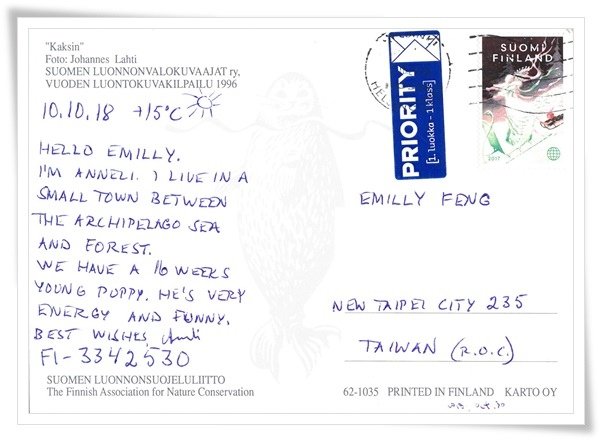 "Kaksin"
Foto: Johannes Lahti
SUOMEN LUONNONVALOKUVAAJAT ry,
VUODEN LUONTOKUVAKILPAILU 1996
10.10.18 +15°C
HELLO EMILLY.
I'M ANNELI. I LIVE IN A
SMALL TOWN BETWEEN
THE ARCHIPELAGO SEA
AND FOREST.
WE HAVE A 16 WEEKS
YOUNG POPPY. HE'S VERY
ENERGY AND FUNNY.
BEST WISHES,
FI-3342530
SUOMEN LUONNONSUOJELULIITTO
The Finnish Association for Nature Conservation
PRIORITY
[1. luokka - 1 klass]
SUOMI
FINLAND
2017
EMILLY FENG
NEW TAIPEI CITY 235
TAIWAN (R.O.C.)
62-1035 PRINTED IN FINLAND KARTO OY